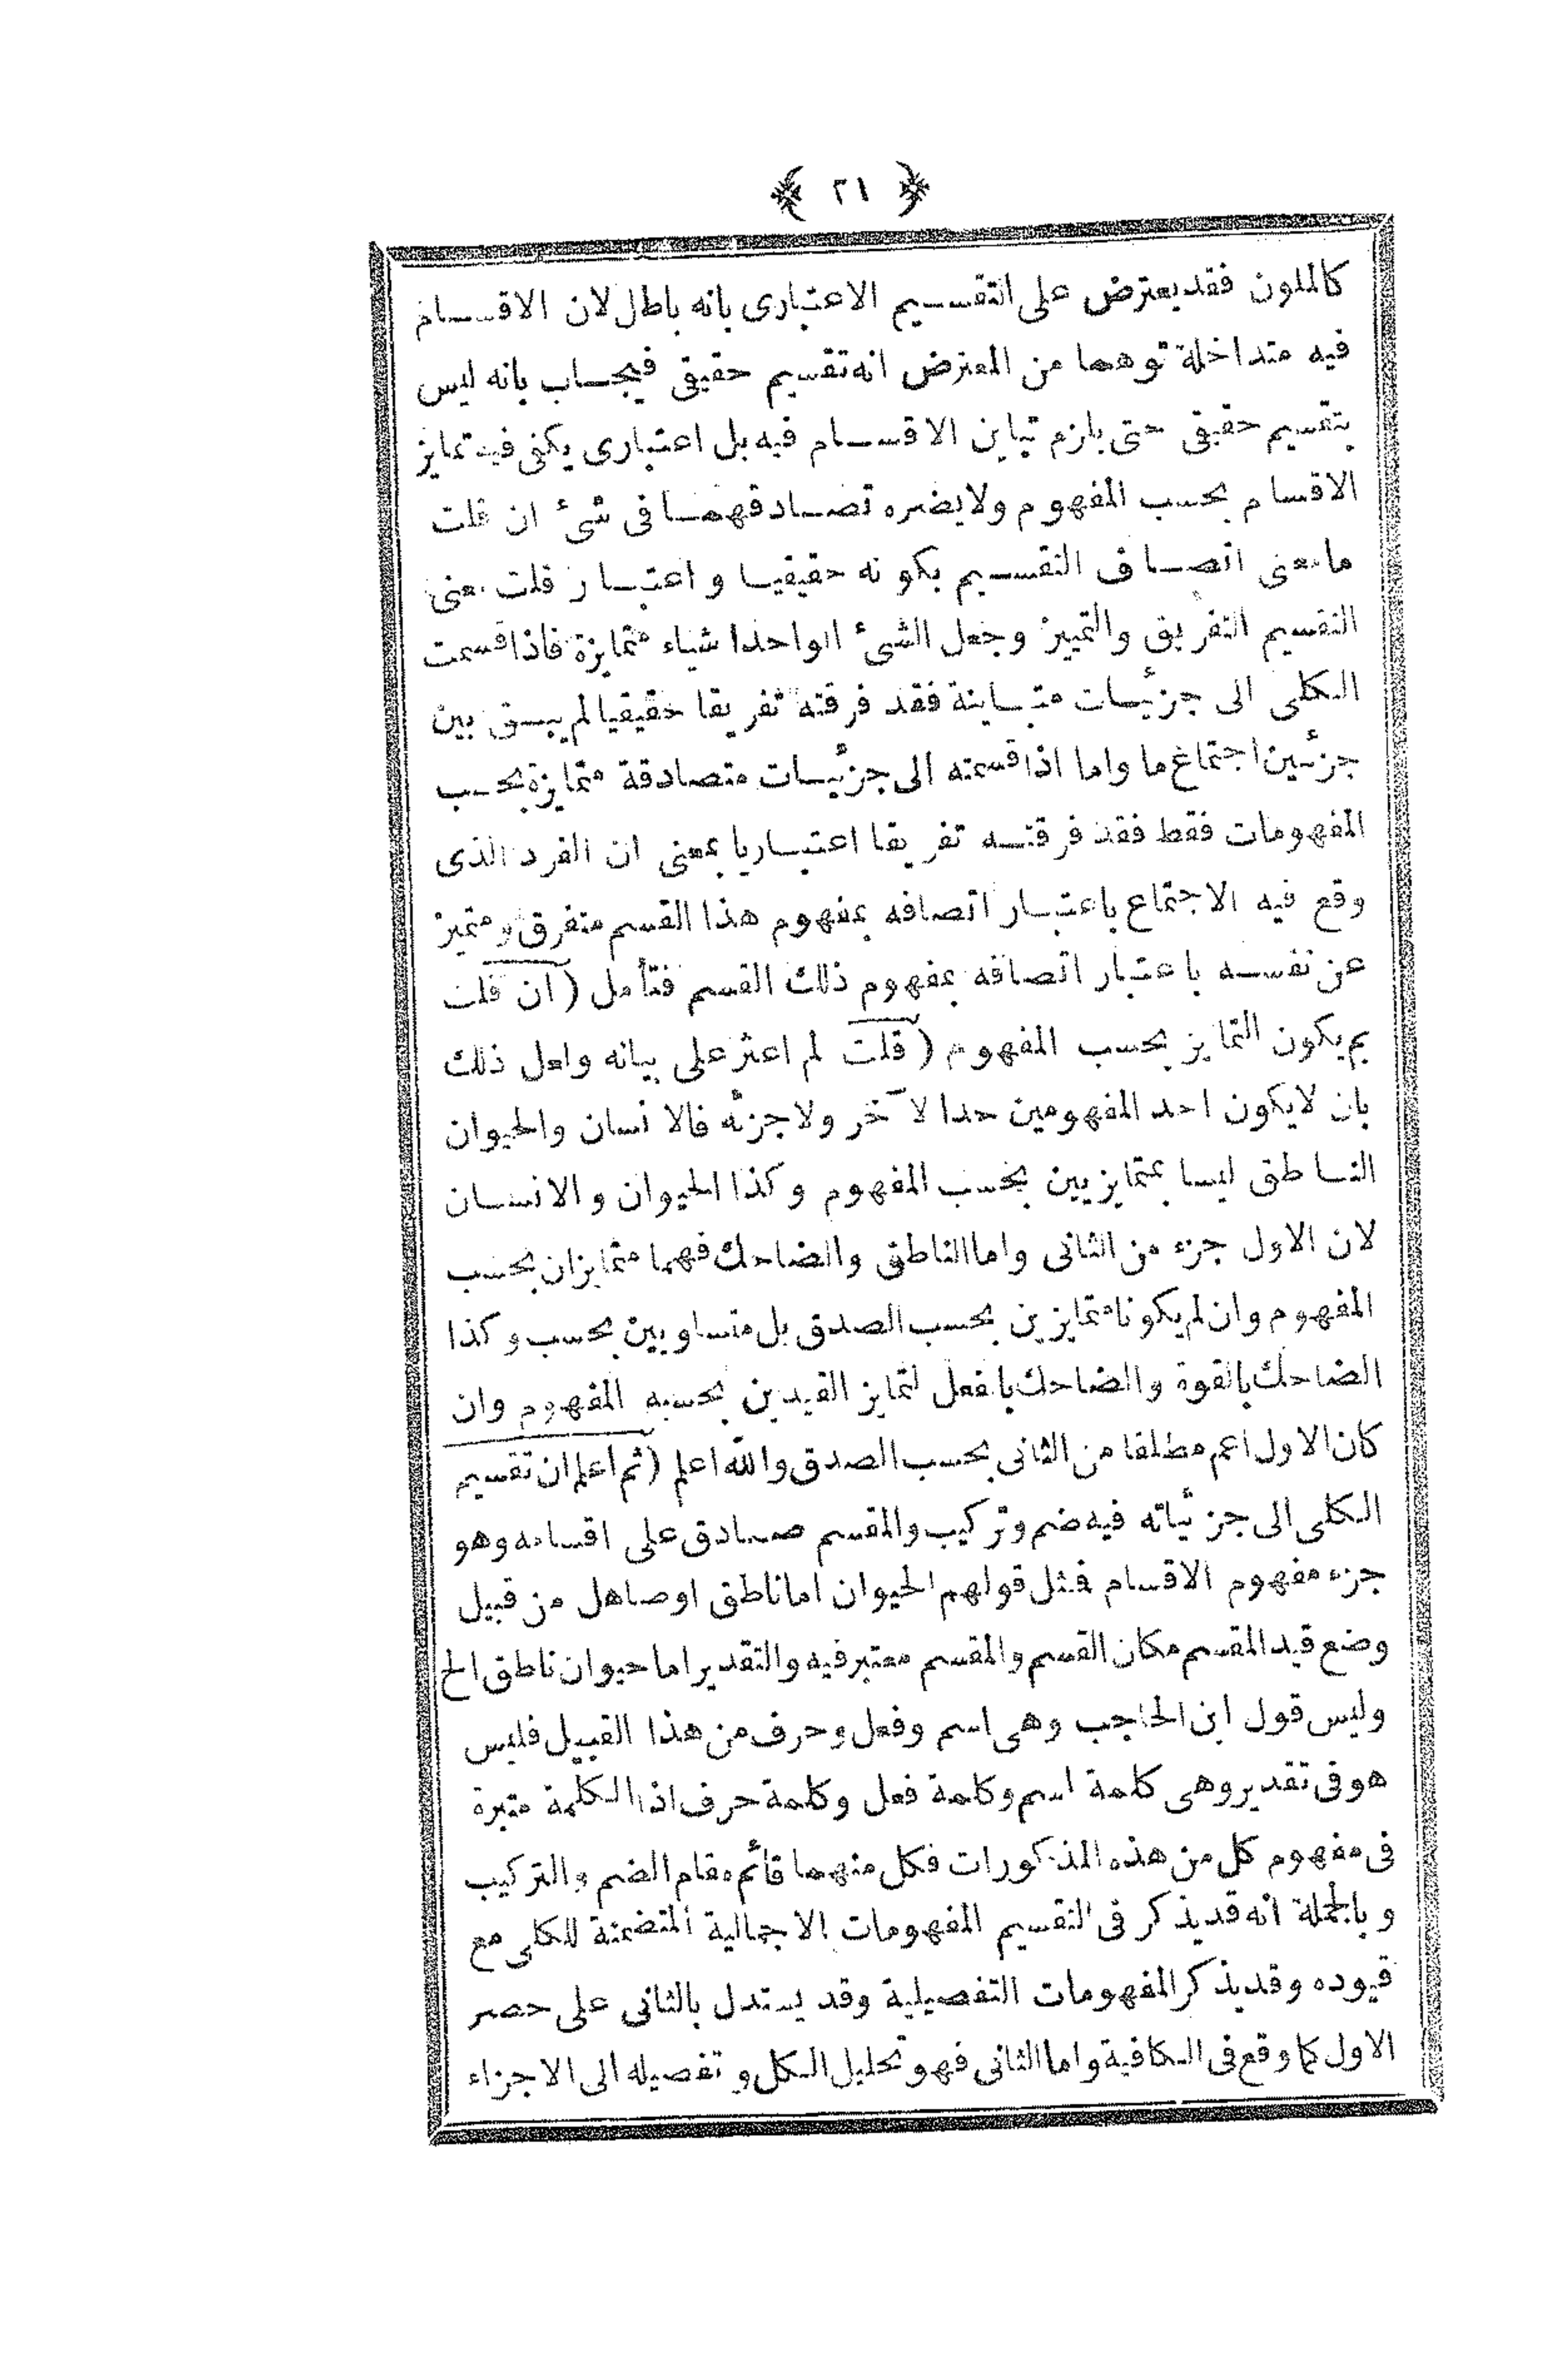 ﴿ ٢١ ﴾
كالملون فقد يعترض على التقسيم الاعتبارى بانه باطل لان الاقسام
فيه متداخلة توهما من المعترض انه تقسيم حقيقى فيجاب بانه ليس
بتقسيم حقيقى حتى يلزم تباين الاقسام فيه بل اعتبارى يكفى فيه تمايز
الاقسام بحسب المفهوم ولا يضره تصادقهما فى شئ ان قلت
ما معنى اتصاف التقسيم بكونه حقيقيا واعتبار قلت معنى
التقسيم التفريق والتمييز وجعل الشئ الواحد اشياء متمايزة فاذا قسمت
الكلى الى جزئيات متباينة فقد فرقته تفريقا حقيقيا لم يبق بين
جزئين اجتماع ما واما اذا قسمته الى جزئيات متصادقة متمايزة بحسب
المفهومات فقط فقد فرقته تفريقا اعتباريا بمعنى ان الفرد الذى
وقع فيه الاجتماع باعتبار اتصافه بمفهوم هذا القسم متفرق ومتميز
عن نفسه باعتبار اتصافه بمفهوم ذلك القسم فتأمل (ان قلت
بم يكون التمايز بحسب المفهوم (قلت لم اعثر على بيانه ولعل ذلك
بان لا يكون احد المفهومين حدا لآخر ولا جزئه فالانسان والحيوان
الناطق ليسا بمتمايزيين بحسب المفهوم وكذا الحيوان والانسان
لان الاول جزء من الثانى واما الناطق والضاحك فهما متمايزان بحسب
المفهوم وان لم يكونا متمايزين بحسب الصدق بل متساويين بحسب وكذا
الضاحك بالقوة والضاحك بالفعل لتمايز القيدين بحسبه المفهوم وان
كان الاول اعم مطلقا من الثانى بحسب الصدق والله اعلم (ثم اعلم ان تقسيم
الكلى الى جزئياته فيه ضم وتركيب والمقسم صادق على اقسامه وهو
جزء مفهوم الاقسام فمثل قولهم الحيوان اما ناطق او صاهل من قبيل
وضع قيد المقسم مكان القسم والمقسم معتبر فيه والتقدير اما حيوان ناطق الخ
وليس قول ابن الحاجب وهى اسم وفعل وحرف من هذا القبيل فليس
هو فى تقدير وهى كلمة اسم وكلمة فعل وكلمة حرف اذ الكلمة متبرة
فى مفهوم كل من هذه المذكورات فكل منهما قائم مقام الضم والتركيب
وبالجملة انه قد يذكر فى التقسيم المفهومات الاجمالية المتضمنة للكلى مع
قيوده وقد يذكر المفهومات التفصيلية وقد يستدل بالثانى على حصر
الاول كما وقع فى الكافية واما الثانى فهو تحليل الكل وتفصيله الى الاجزاء